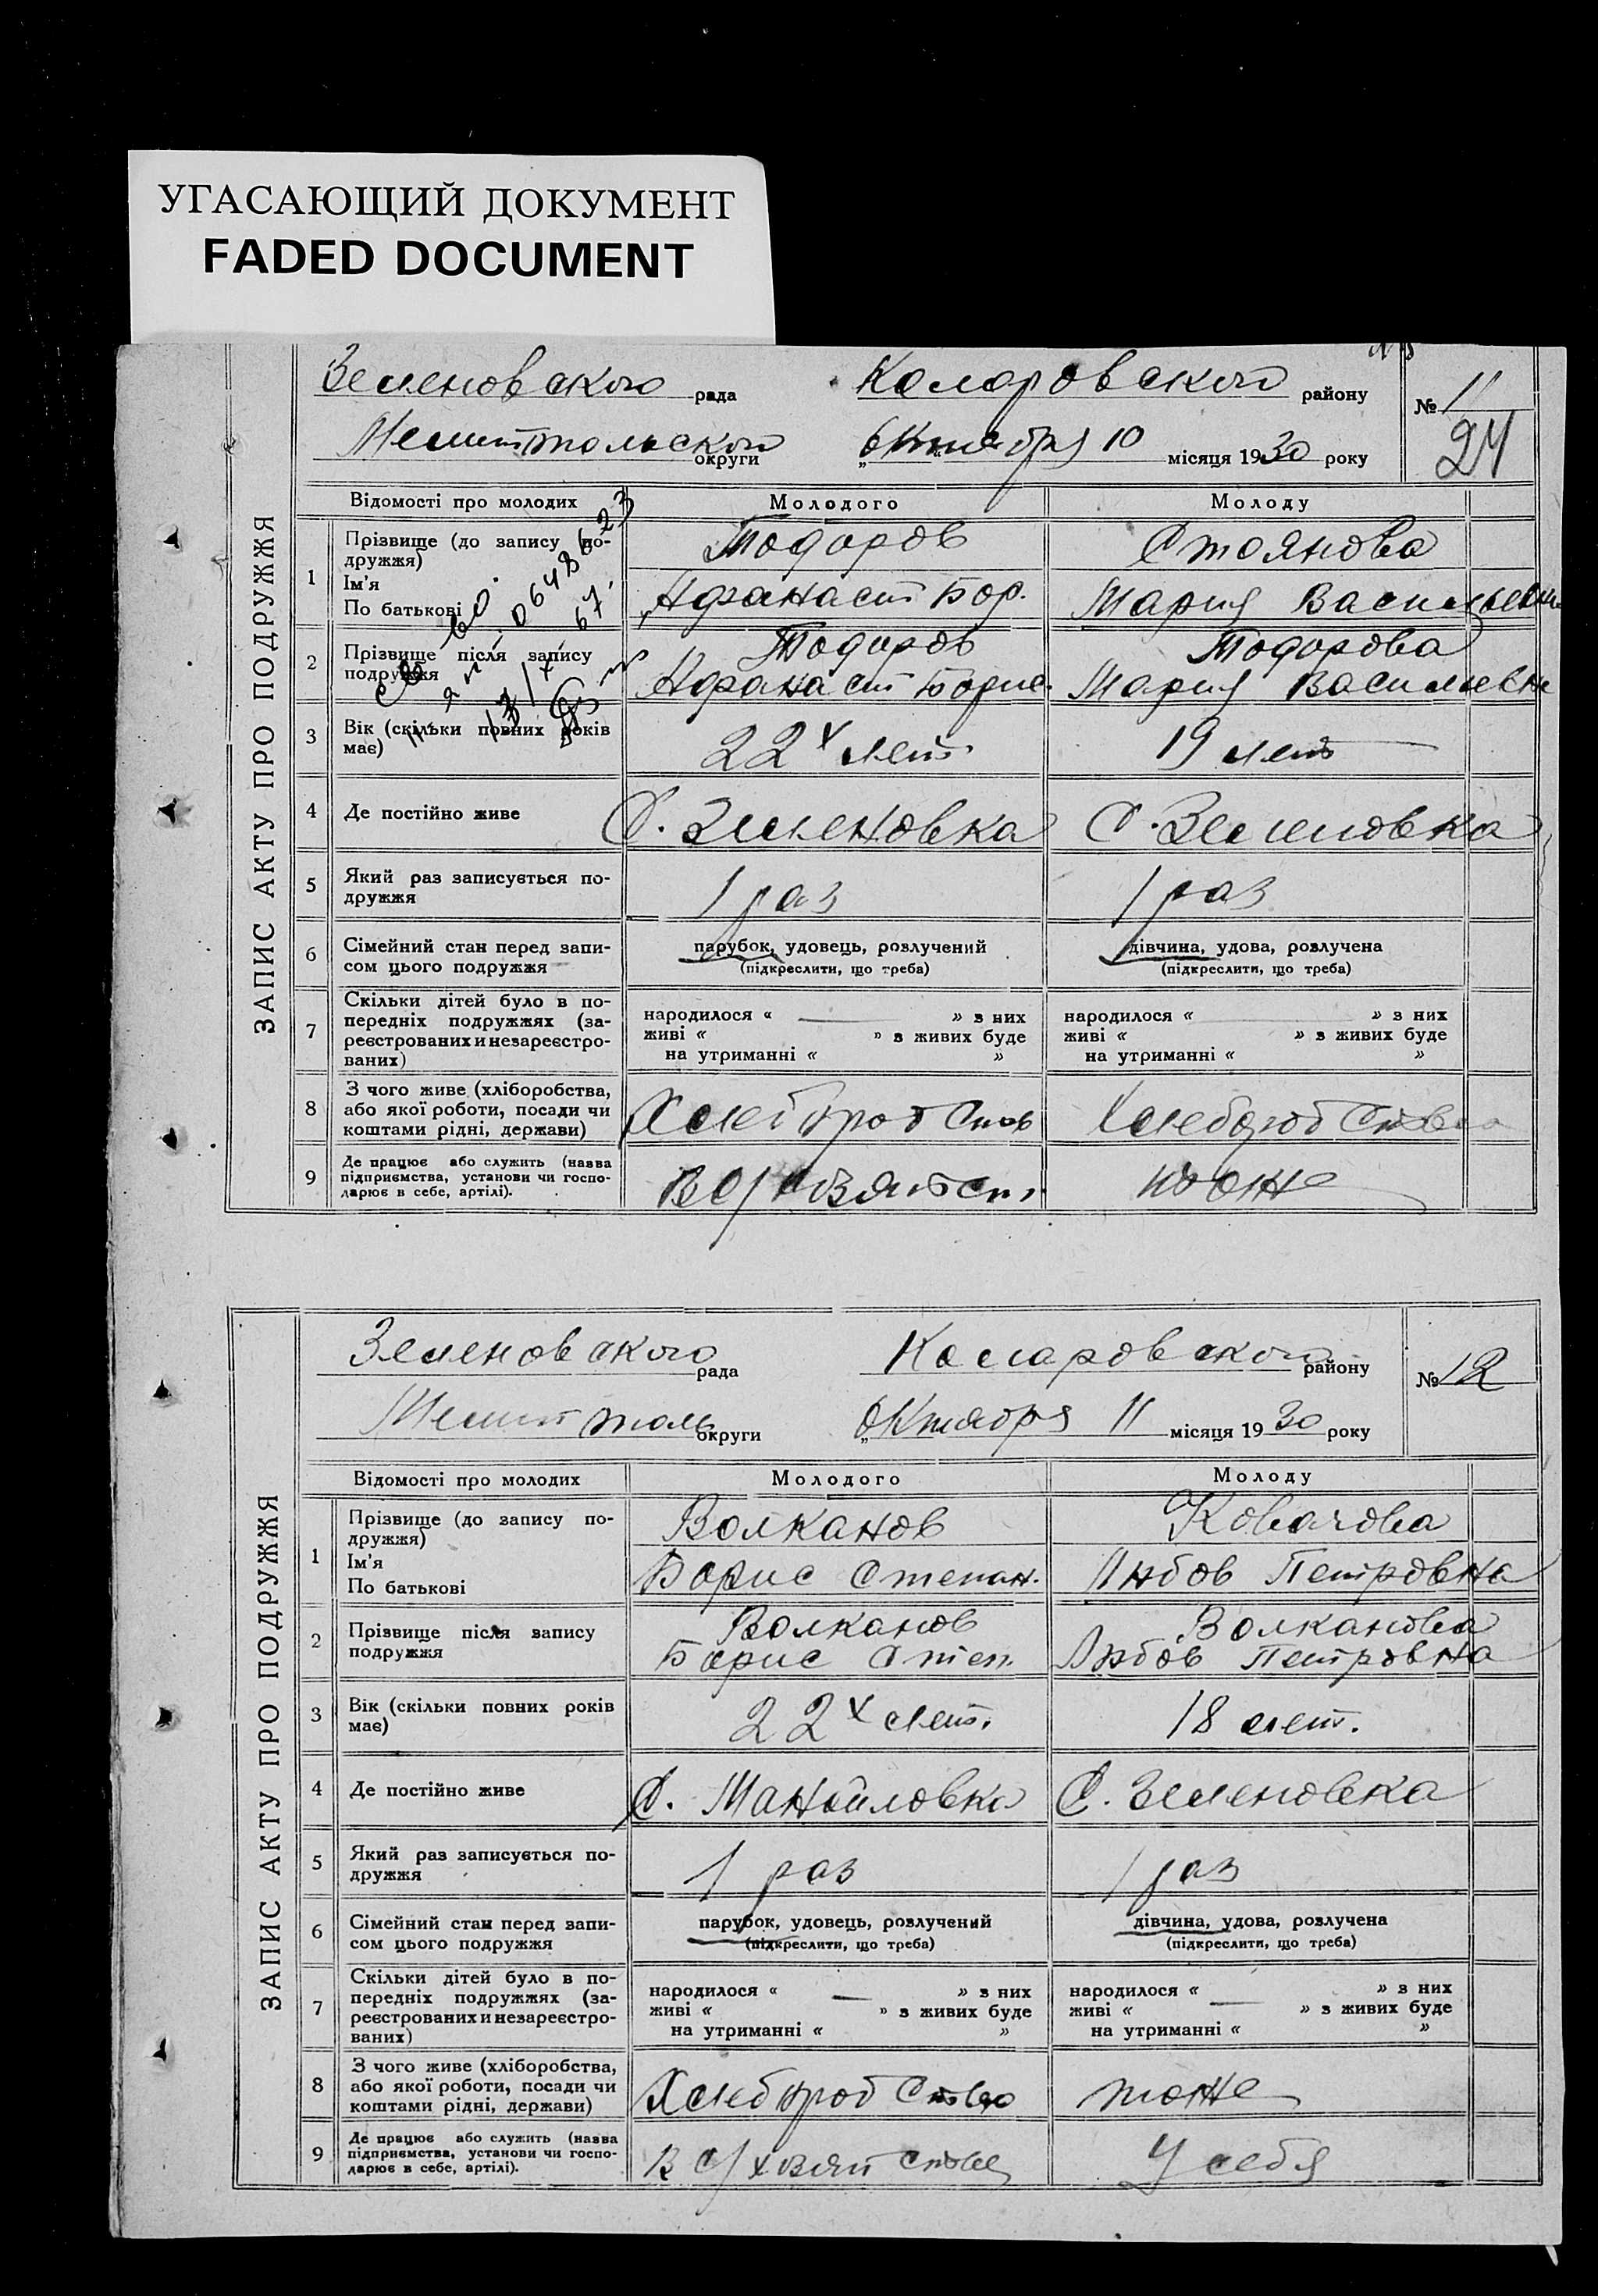 УГАСАЮЩИЙ ДОКУМЕНТ
FADED DOCUMENT
ЗАПИС АКТУ ПРО ПОДРУЖЖЯ
Зеленовского рада Коларовского району № 11
Мелитопольского округи „Октября 10 місяця 1930 року 24
Відомості про молодих Молодого Молоду
1 Прізвище (до запису по-
дружжя)
Ім'я
По батькові
Тодоров Стоянова
Афанасий Бор. Мария Васильевна
2 Прізвище після запису
подружжя
Тодоров Тодорова
Афанасий Борис. Мария Васильевна
3 Вік (скільки повних років
має)
22х лет 19 лет
4 Де постійно живе С. Зеленовка С. Зеленовка
5 Який раз записується по-
дружжя
1 раз 1 раз
6 Сімейний стан перед запи-
сом цього подружжя
парубок, удовець, розлучений дівчина, удова, розлучена
(підкреслити, що треба) (підкреслити, що треба)
7 Скільки дітей було в по-
передніх подружжях (за-
реєстрованих и незареєстро-
ваних)
народилося « » з них народилося « » з них
живі « » з живих буде живі « » з живих буде
на утриманні « » на утриманні « »
8 З чого живе (хліборобства,
або якої роботи, посади чи
коштами рідні, держави)
Хлебород Хлебород
9 Де працює або служить (назва
підприємства, установи чи госпо-
дарює в себе, артілі).
тоже
ЗАПИС АКТУ ПРО ПОДРУЖЖЯ
Зеленовского рада Коларовского району № 12
округи „Октября 11 місяця 1930 року
Відомості про молодих Молодого Молоду
1 Прізвище (до запису по-
дружжя)
Ім'я
По батькові
Волканов Ковачова
Борис Степан. Любов Петровна
2 Прізвище після запису
подружжя
Волканов Волканова
Борис Степ. Любов Петровна
3 Вік (скільки повних років
має)
22х лет. 18 лет.
4 Де постійно живе С. Манойловка С. Зеленовка
5 Який раз записується по-
дружжя
1 раз 1 раз
6 Сімейний стан перед запи-
сом цього подружжя
парубок, удовець, розлучений дівчина, удова, розлучена
(підкреслити, що треба) (підкреслити, що треба)
7 Скільки дітей було в по-
передніх подружжях (за-
реєстрованих и незареєстро-
ваних)
народилося « — » з них народилося « — » з них
живі « » з живих буде живі « » з живих буде
на утриманні « » на утриманні « »
8 З чого живе (хліборобства,
або якої роботи, посади чи
коштами рідні, держави)
Хлебород тоже
9 Де працює або служить (назва
підприємства, установи чи госпо-
дарює в себе, артілі).
У себя